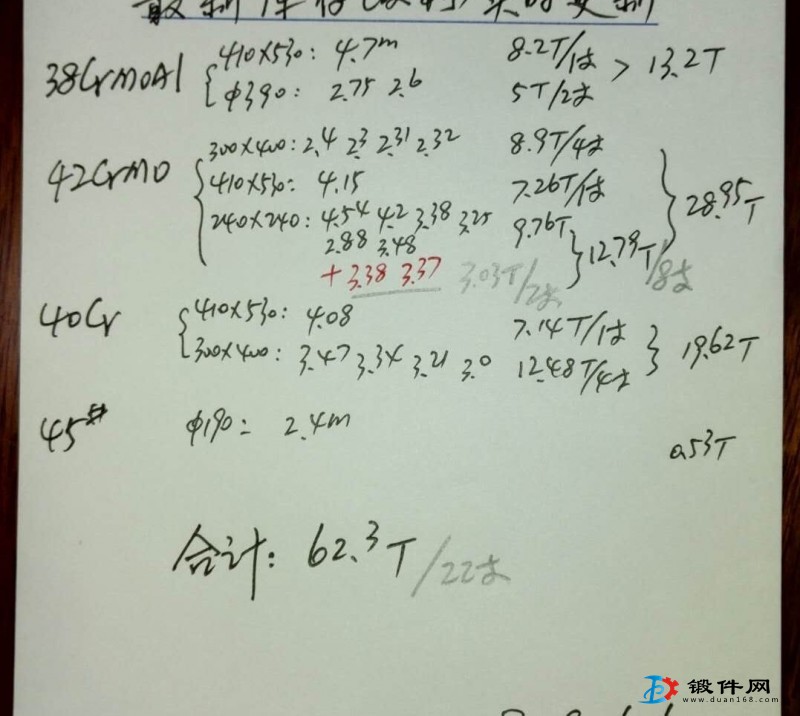 最新库存
38CrMoAl 410×530: 4.7m 8.2T/1支 > 13.2T
φ390: 2.75 2.6 5T/2支
42CrMo 300×400: 2.4 2.3 2.31 2.32 8.9T/4支
410×530: 4.15 7.26T/1支 28.95T
240×240: 4.54 4.2 3.38 3.25 9.76T
2.88 3.48 12.79T/8支
+3.38 3.37 3.03T/2支
40Cr 410×530: 4.08 7.14T/1支
300×400: 3.47 3.34 3.21 3.0 12.48T/4支 19.62T
45# φ190: 2.4m
0.53T
合计: 62.3T/22支
锻件网
www.duan168.com